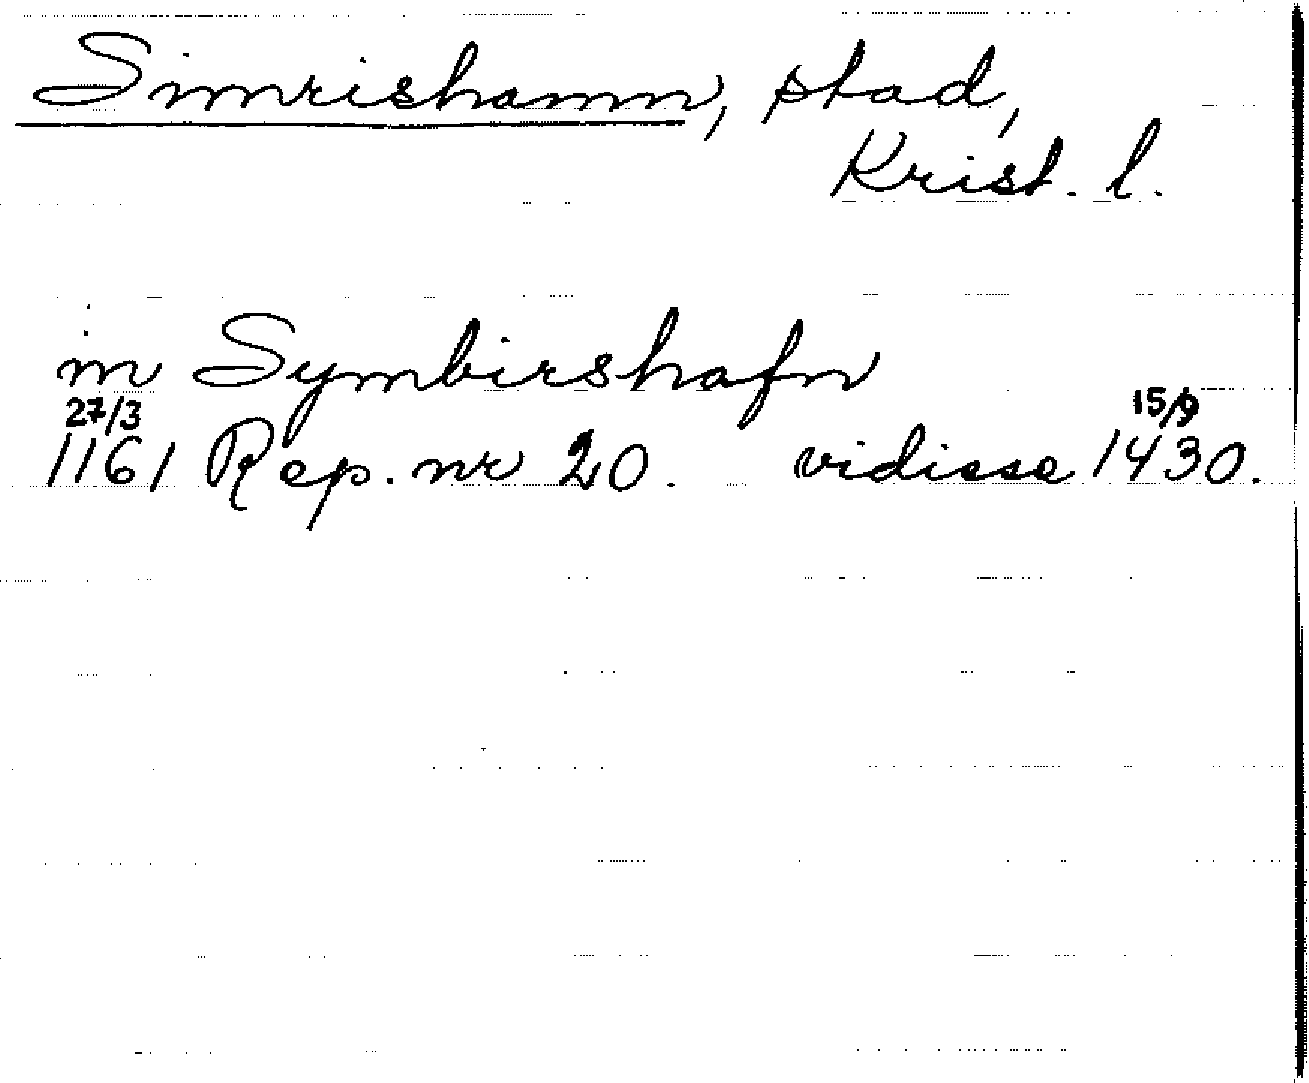 Simrishamn, stad,
Krist. l.
in Symbirshafn
27/3 15/9
1161 Rep. nr 20. vidisse 1430.